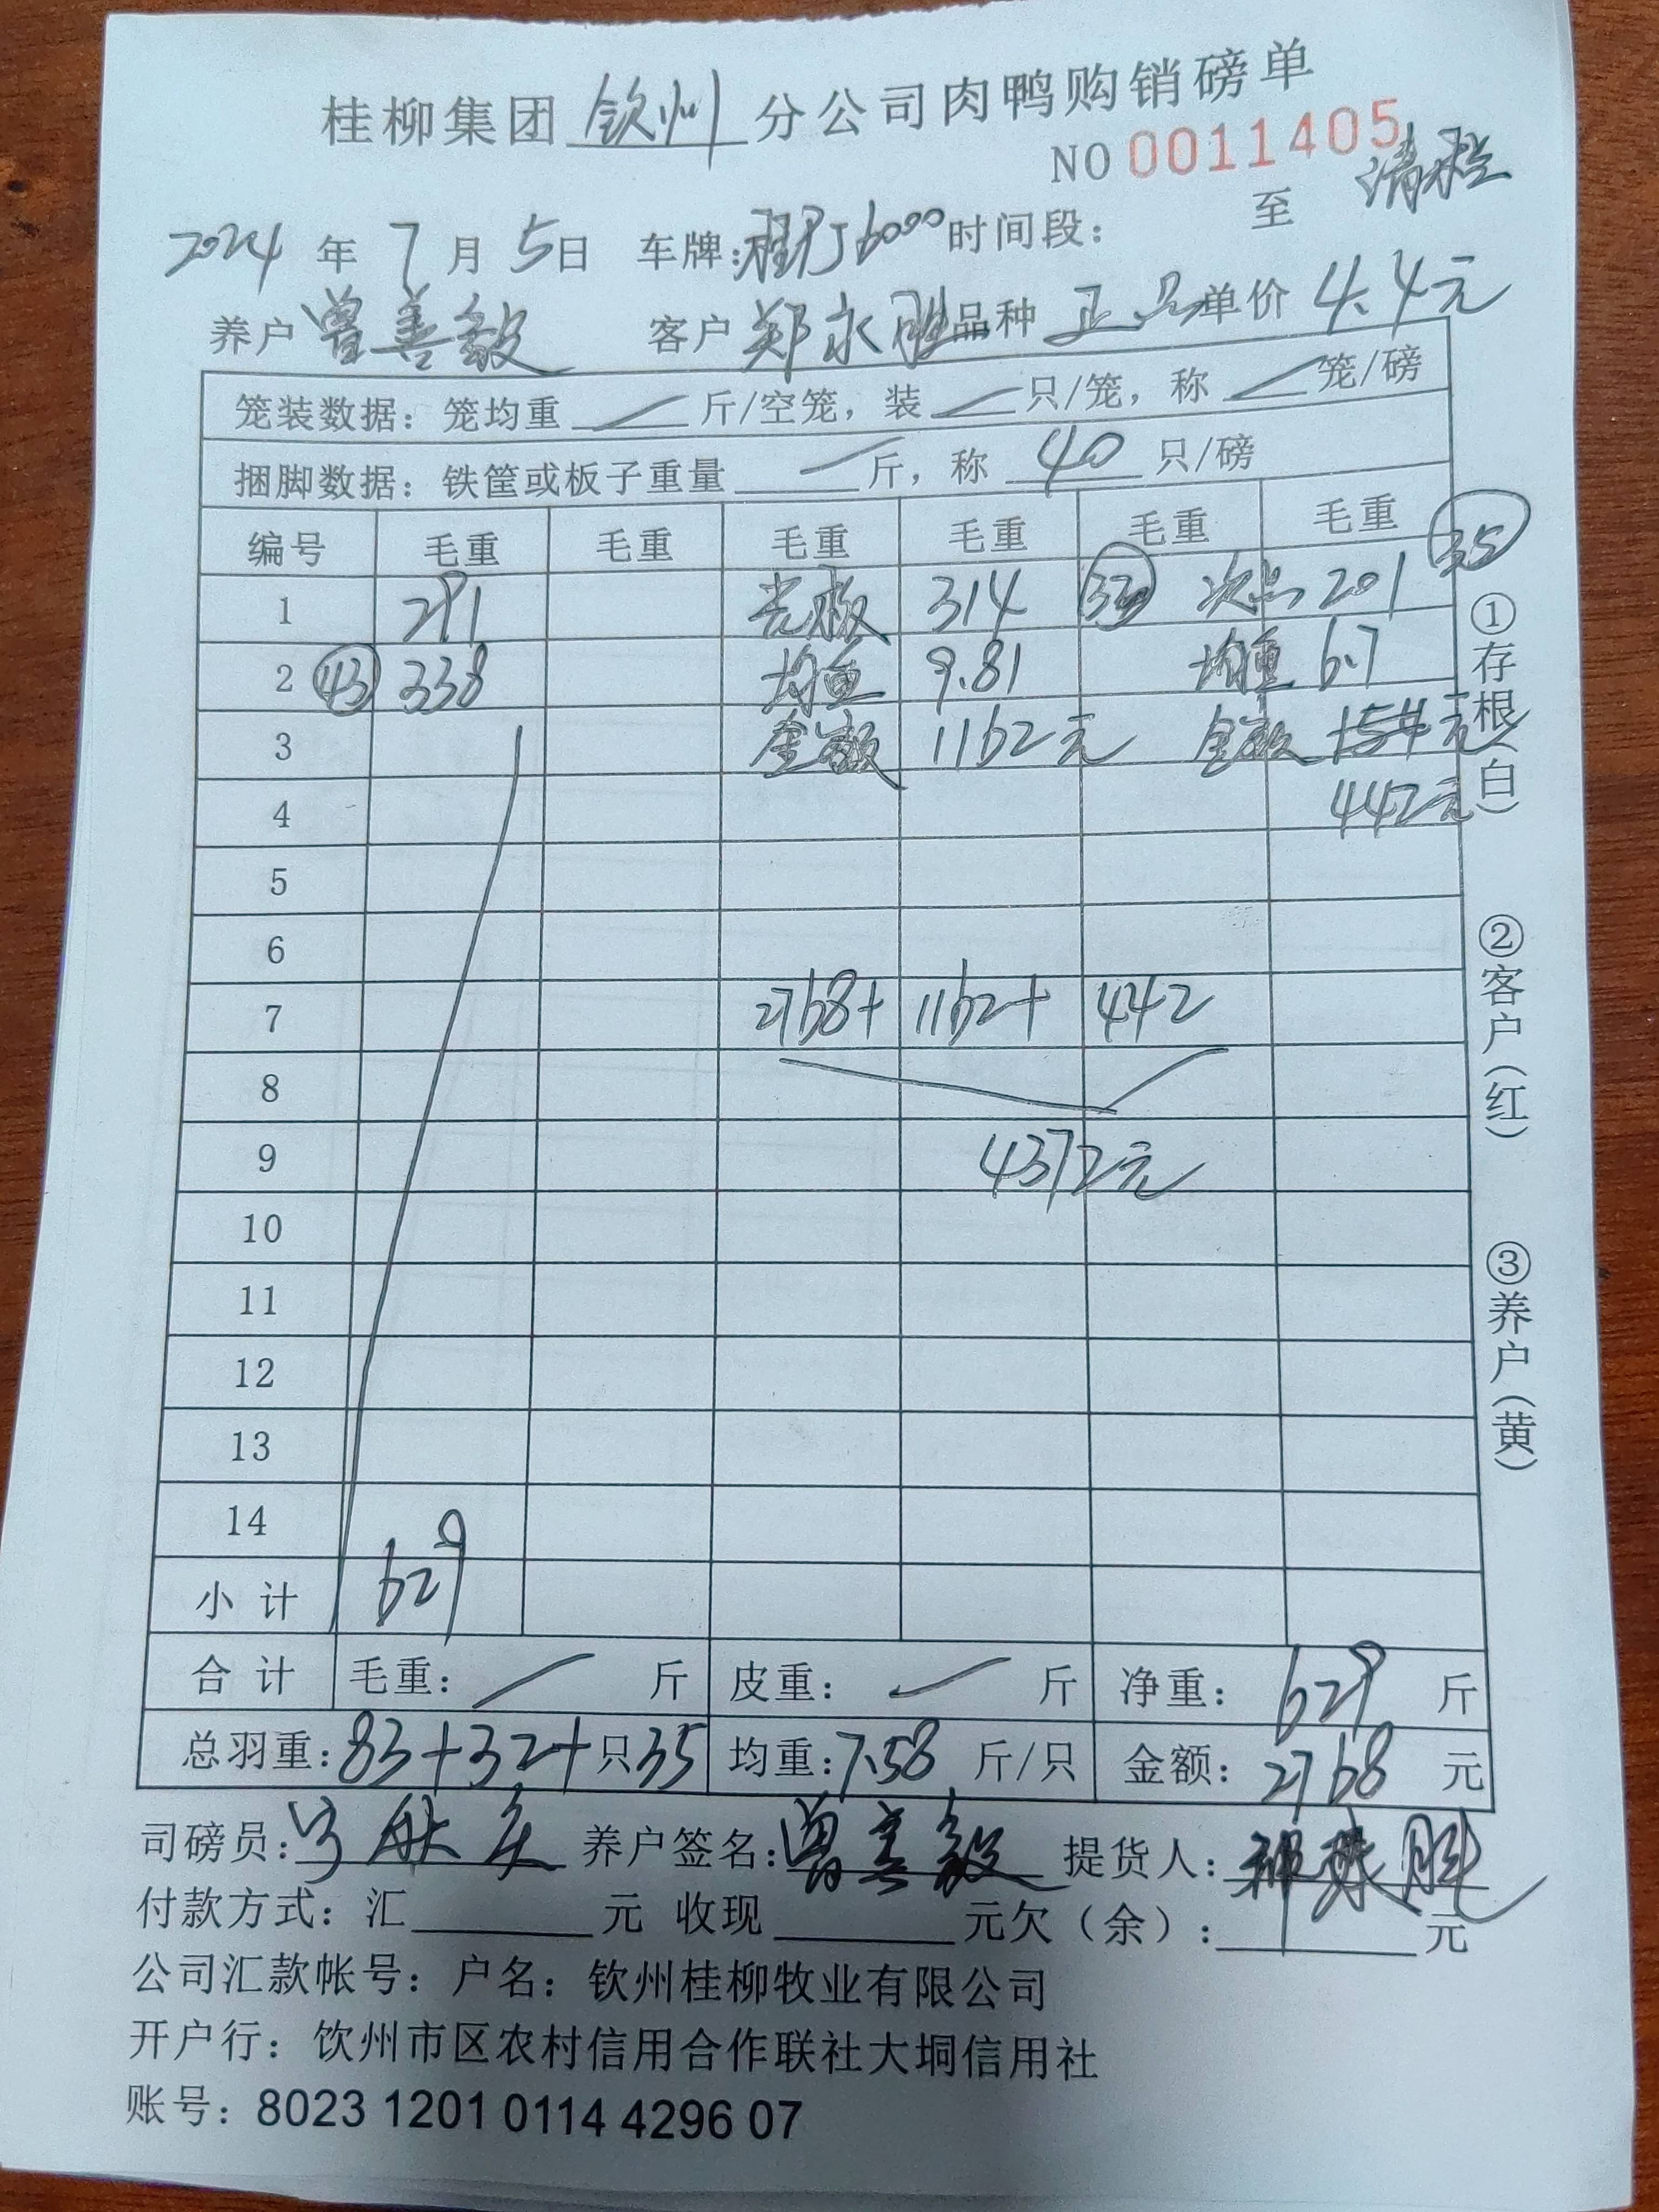 桂柳集团 钦州 分公司肉鸭购销磅单
NO 0011405
2024 年 7 月 5日 车牌: 6000 时间段: 至
养户 曾善毅 客户 郑永胜 品种 正品 单价 4.4元
笼装数据: 笼均重 斤/空笼, 装 只/笼, 称 笼/磅
捆脚数据: 铁筐或板子重量 斤, 称 40 只/磅
编号 毛重 毛重 毛重 毛重 毛重 毛重 35
1 291 光板 314 32 次品 201
2 43 338 均重 9.81 均重 6.7
3 金额 1162元 金额
4 442元
5
6
7 2768+ 1162+ 442
8
9 4372元
10
11
12
13
14
小计 629
合计 毛重: 斤 皮重: 斤 净重: 629 斤
总羽重: 83+32+只35 均重: 7.58 斤/只 金额: 2768 元
司磅员: 养户签名: 曾善毅 提货人: 郑永胜
付款方式: 汇 元 收现 元欠(余): 元
公司汇款帐号: 户名: 钦州桂柳牧业有限公司
开户行: 钦州市区农村信用合作联社大垌信用社
账号: 8023 1201 0114 4296 07
①存根(白)
②客户(红)
③养户(黄)